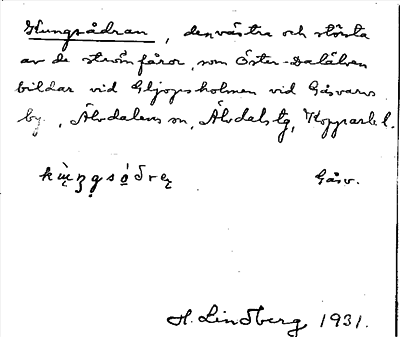 Kungsådran, den västra och största
av de strömfåror, som Öster-Dalälven
bildar vid Gljopsholmen vid Gåsvarvs
by, Älvdalens sn, Älvdals tg, Kopparb. l.
Gåsv.
H. Lindberg 1931.